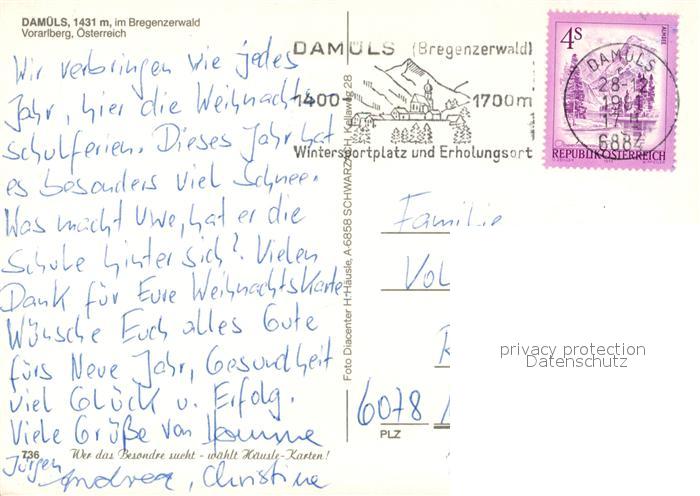 DAMÜLS, 1431 m, im Bregenzerwald
Vorarlberg, Österreich
Wir verbringen wie jedes
Jahr, hier die Weihnachts-
schulferien. Dieses Jahr hat
es besonders viel Schnee.
Was macht Uwe, hat er die
Schule hinter sich? Vielen
Dank für Eure Weihnachtskarte
Wünsche Euch alles Gute
fürs Neue Jahr, Gesundheit
viel Glück u. Erfolg.
Viele Grüße von
Jürgen
Andrea, Christina
736 Wer das Besondre sucht - wählt Häusle-Karten!
Foto Diacenter H. Häusle, A-6858 SCHWARZACH, Kellaweg 28
DAMÜLS (Bregenzerwald)
1400 1700m
Wintersportplatz und Erholungsort
4S
ALMSEE
REPUBLIK ÖSTERREICH
DAMÜLS
28-12
6884
Familie
Vol
6078
PLZ
privacy protection
Datenschutz